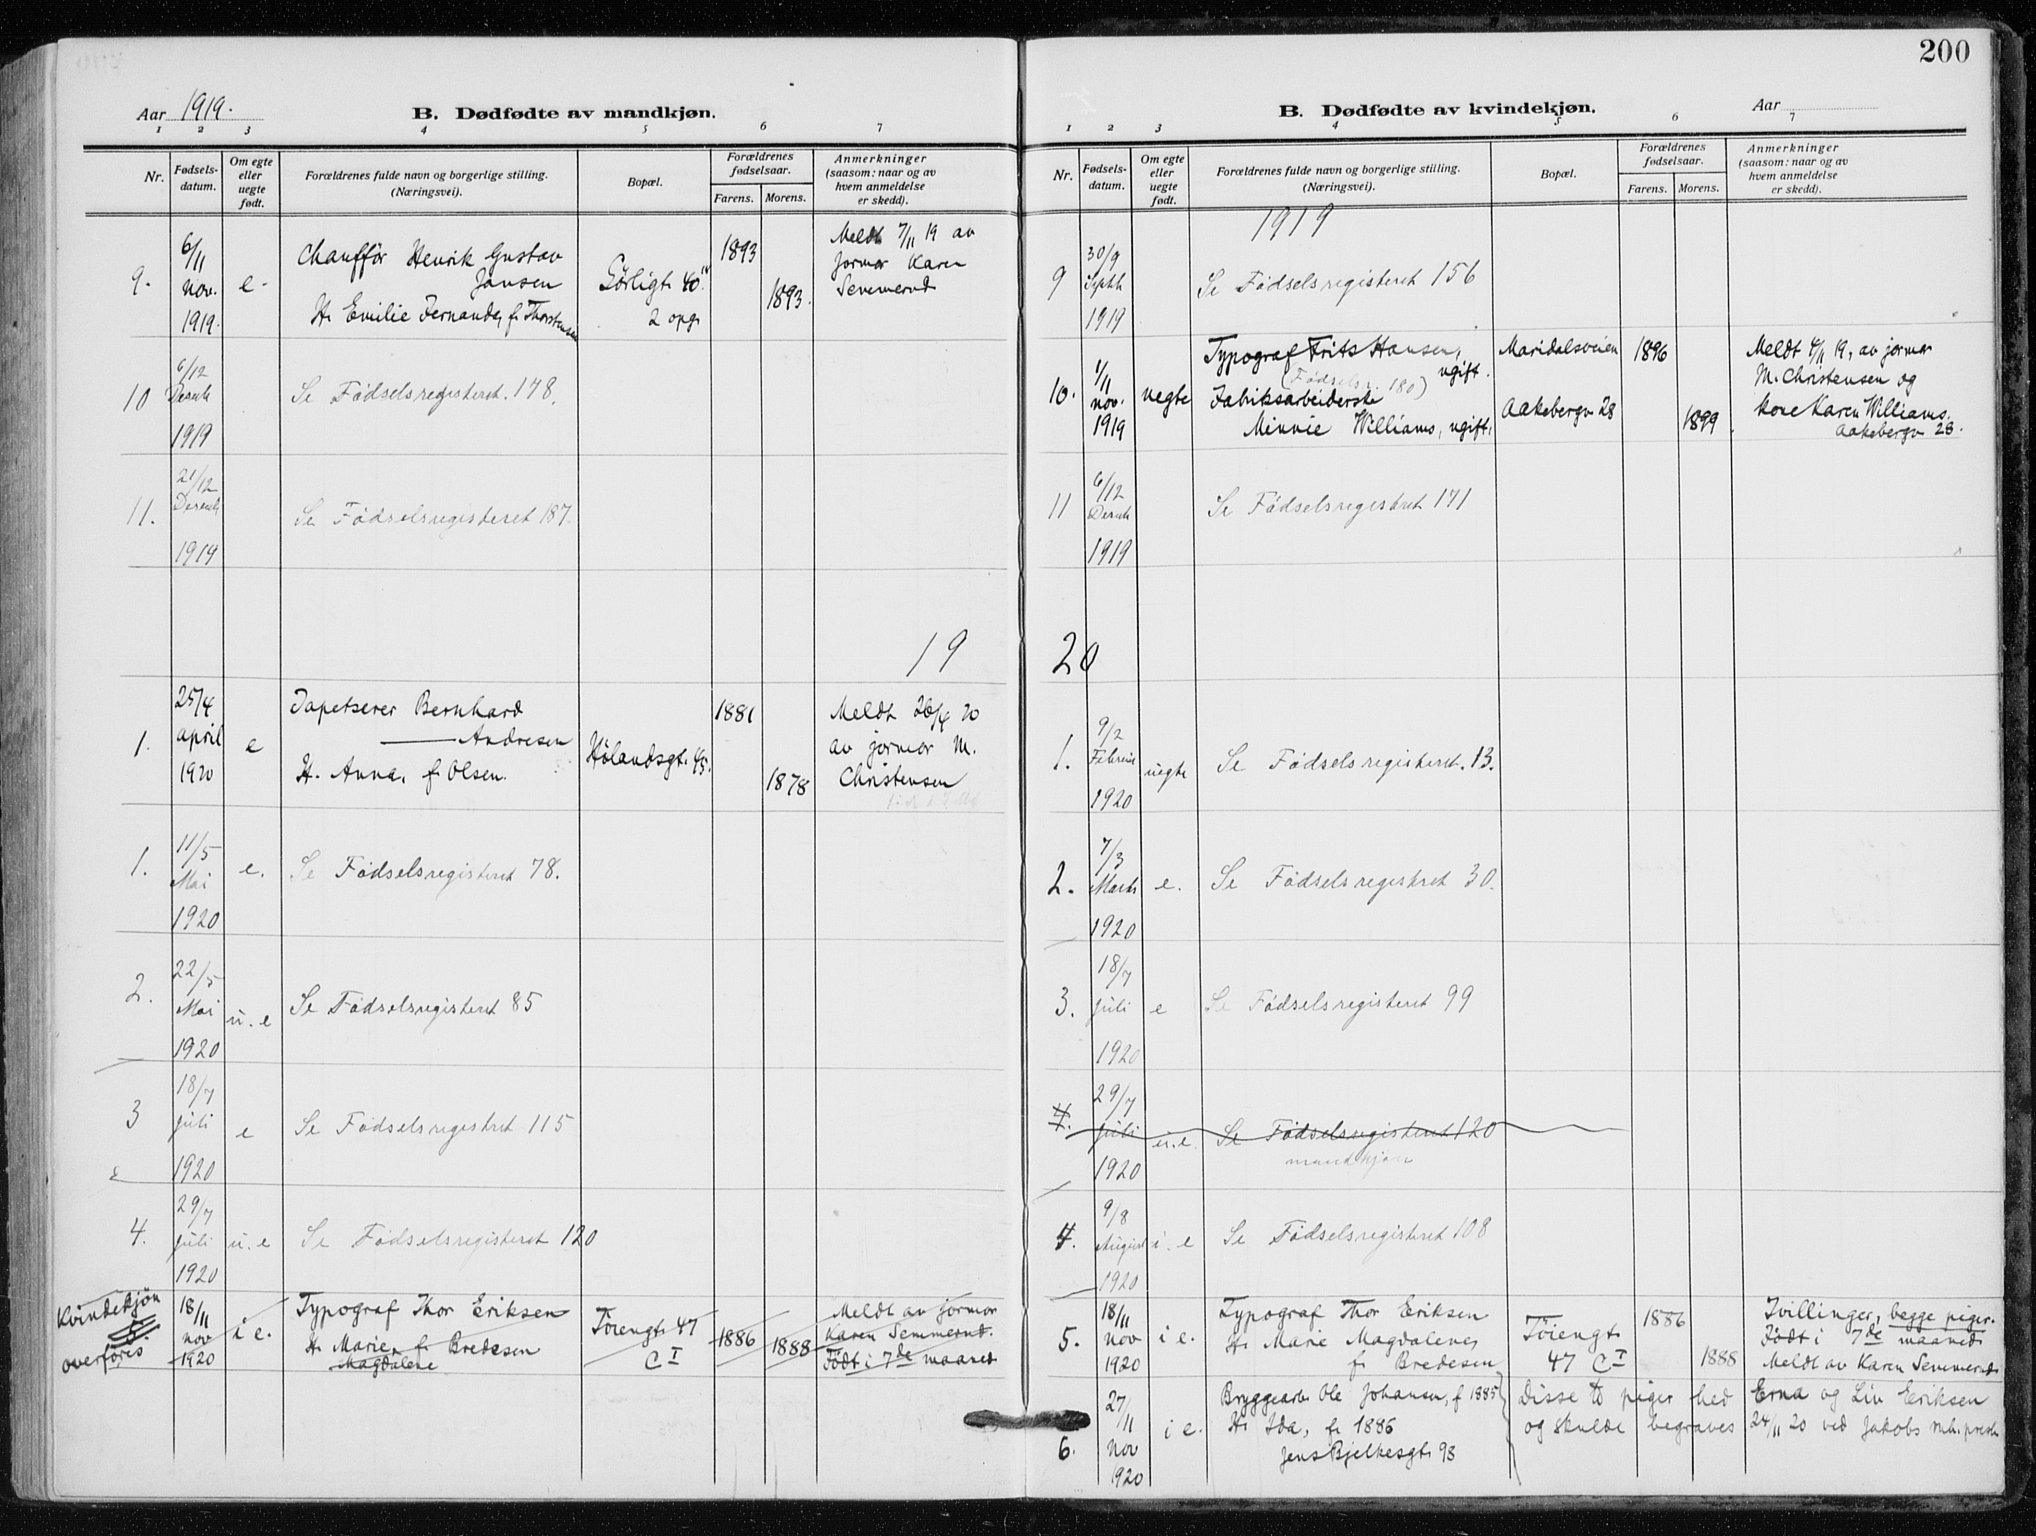 200
Aar 1919.
B. Dødfødte av mandkjøn.
1 2 3 4 5 6 7
Nr.
Fødsels-
datum.
Om egte
eller
uegte
født.
Forældrenes fulde navn og borgerlige stilling.
(Næringsvei).
Bopæl.
Forældrenes
fødselsaar.
Farens. Morens.
Anmerkninger
(saasom: naar og av
hvem anmeldelse
er skedd).
9.
6/11
nov.
1919.
e.
Chauffør Henrik Gustav
Jansen
H. Emilie Fernanda, f. Thorstensen
Sørligt. 40
2 opg.
1893
1893.
Meldt 7/11 19 av
jormor Karen
Semmerud
10
6/12
Desemb
1919
Se Fødselsregisteret. 178.
11.
21/12
Desemb
1919
Se Fødselsregisteret 187.
19
1.
25/4
april
1920
e
Tapetserer Bernhard
Andresen
H. Anna, f. Olsen.
Hølandsgt. 45.
1881
1878
Meldt 26/4 20
av jormor M.
Christensen
1.
11/5
Mai
1920
e.
Se Fødselsregisteret 78.
2.
22/5
Mai
1920
u. e
Se Fødselsregisteret 85
3
18/7
juli
1920
e
Se Fødselsregisteret 115
4.
29/7
juli
1920
u. e
Se Fødselsregisteret 120
Kvindekjøn
5.
overføres
18/11
nov
1920
i e.
Typograf Thor Eriksen
H. Marie, f. Bredesen
Magdalene
Tøiengt. 47
C I
1886
1888
Meldt av jormor
Karen Semmerud.
Født i 7de maaned
B. Dødfødte av kvindekjøn.
Aar
1 2 3 4 5 6 7
Nr.
Fødsels-
datum.
Om egte
eller
uegte
født.
Forældrenes fulde navn og borgerlige stilling.
(Næringsvei).
Bopæl.
Forældrenes
fødselsaar.
Farens. Morens.
Anmerkninger
(saasom: naar og av
hvem anmeldelse
er skedd).
1919
9
30/9
Septb
1919
Se Fødselsregisteret 156
10.
1/11
nov.
1919
uegte
Typograf Frits Hansen,
ugift.
(Fødselsr. 180)
Fabriksarbeiderske
Minnie Williams, ugift.
Maridalsveien
Aakebergv 28
1896
1899
Meldt 4/11 19, av jormor
M. Christensen og
kone Karen Williams.
Aakebergv 28.
11
6/12
Desemb
1919
Se Fødselsregisteret 171
20
1.
9/2
Februar
1920
uegte
Se Fødselsregisteret. 13.
2.
7/3
Marts
1920
e.
Se Fødselsregisteret 30.
3.
18/7
juli
1920
e
Se Fødselsregisteret 99
4.
29/7
juli
1920
u. e
Se Fødselsregisteret 120
mandkjøn
4.
9/8
August
1920
i. e
Se Fødselsregisteret 108
5.
18/11
nov
1920
i e.
Typograf Thor Eriksen
H. Marie Magdalene,
f. Bredesen
Tøiengt.
47 C I
1886
1888
Tvillinger, begge piger.
Født i 7de maaned
Meldt av Karen Semmerud
Disse to piger hed Erna og Liv Eriksen
og skulde begraves 24/11 20 ved Jakobs mh. prest.
6.
27/11
nov
1920
i e.
Bryggearb. Ole Johansen, f 1885
H. Ida, f. 1886
Jens Bjelkesgt. 93